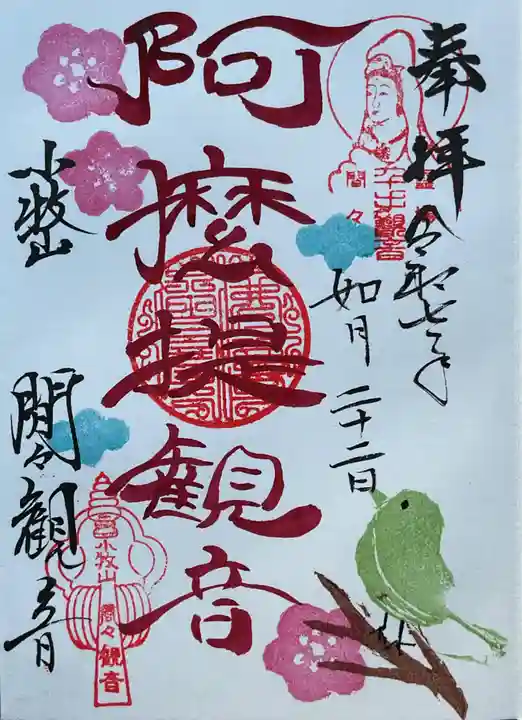 奉拝
令和七年
如月二十二日
阿摩提観音
小牧山
間々観音
間々
小牧山
間々観音